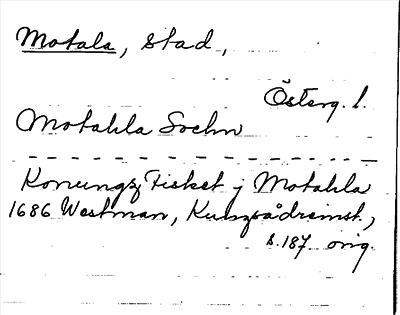 Motala, stad,
Österg. l.
Motahla Sochn
Konungz Fisket j Motahla
1686 Westman, Kunzådreinst.,
s. 187 orig.